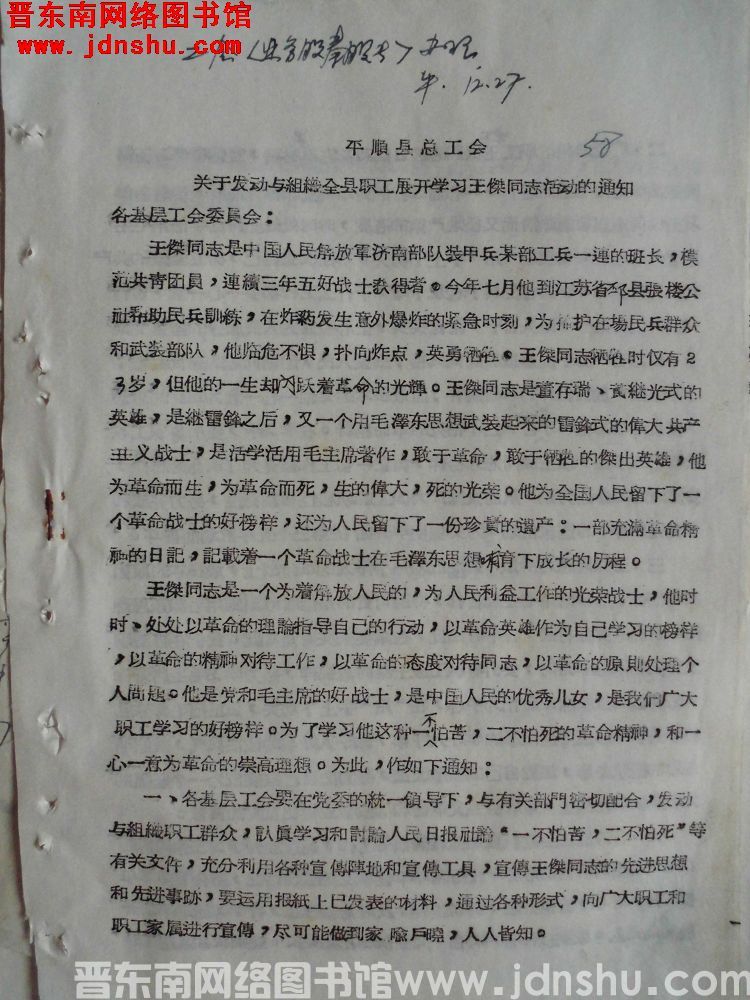 晋东南网络图书馆
www.jdnshu.com
12.27.
58
平順县总工会
关于发动与組織全县职工展开学习王傑同志活动的通知
各基层工会委員会：
王傑同志是中国人民解放軍济南部队裝甲兵某部工兵一連的班长，模
范共青团員，連續三年五好战士获得者。今年七月他到江苏省邳县張楼公
社帮助民兵訓練，在炸葯发生意外爆炸的紧急时刻，为掩护在場民兵群众
和武裝部队，他临危不惧，扑向炸点，英勇牺牲。王傑同志牺牲时仅有2
3岁，但他的一生却闪跃着革命的光輝。王傑同志是董存瑞、黄継光式的
英雄，是継雷鋒之后，又一个用毛澤东思想武裝起来的雷鋒式的偉大共产
主义战士，是活学活用毛主席著作，敢于革命，敢于牺牲的傑出英雄，他
为革命而生，为革命而死，生的偉大，死的光荣。他为全国人民留下了一
个革命战士的好榜样，还为人民留下了一份珍貴的遗产：一部充滿革命精
神的日記，記載着一个革命战士在毛澤东思想哺育下成长的历程。
王傑同志是一个为着解放人民的，为人民利益工作的光荣战士，他时
时、处处以革命的理論指导自己的行动，以革命英雄作为自己学习的榜样
，以革命的精神对待工作，以革命的态度对待同志，以革命的原則处理个
人問題。他是党和毛主席的好战士，是中国人民的优秀儿女，是我們广大
职工学习的好榜样。为了学习他这种一不怕苦，二不怕死的革命精神，和一
心一意为革命的崇高理想。为此，作如下通知：
一、各基层工会要在党委的統一領导下，与有关部門密切配合，发动
与組織职工群众，认眞学习和討論人民日报社論“一不怕苦，二不怕死”等
有关文件，充分利用各种宣傳陣地和宣傳工具，宣傳王傑同志的先进思想
和先进事跡，要运用报紙上已发表的材料，通过各种形式，向广大职工和
职工家属进行宣傳，尽可能做到家喩戶曉，人人皆知。
晋东南网络图书馆www.jdnshu.com